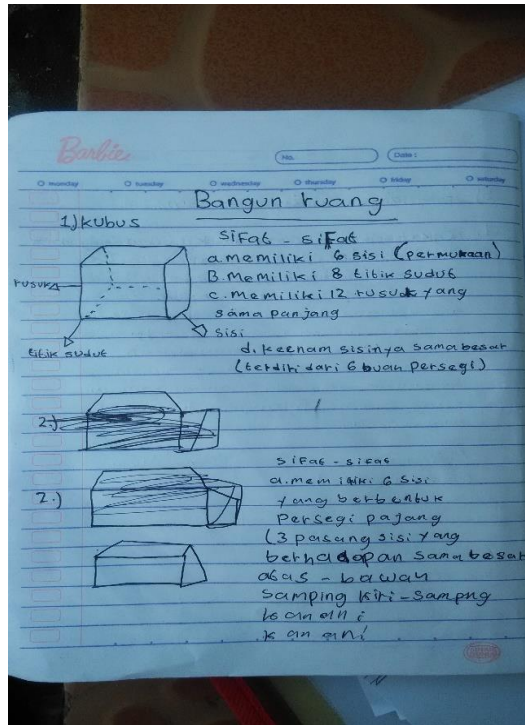 Barbie
No.
Date :
monday tuesday wednesday thursday friday saturday
Bangun ruang
1) kubus
sifat - sifat
a. memiliki 6 sisi (permukaan)
B. memiliki 8 titik sudut
rusuk
c. memiliki 12 rusuk yang
sama panjang
sisi
titik sudut
d. keenam sisinya sama besar
(terdiri dari 6 buah persegi)
2.)
sifat - sifat
2.)
a. memiliki 6 sisi
yang berbentuk
persegi pajang
(3 pasang sisi yang
berhadapan sama besar
atas - bawah
samping kiri - sampng